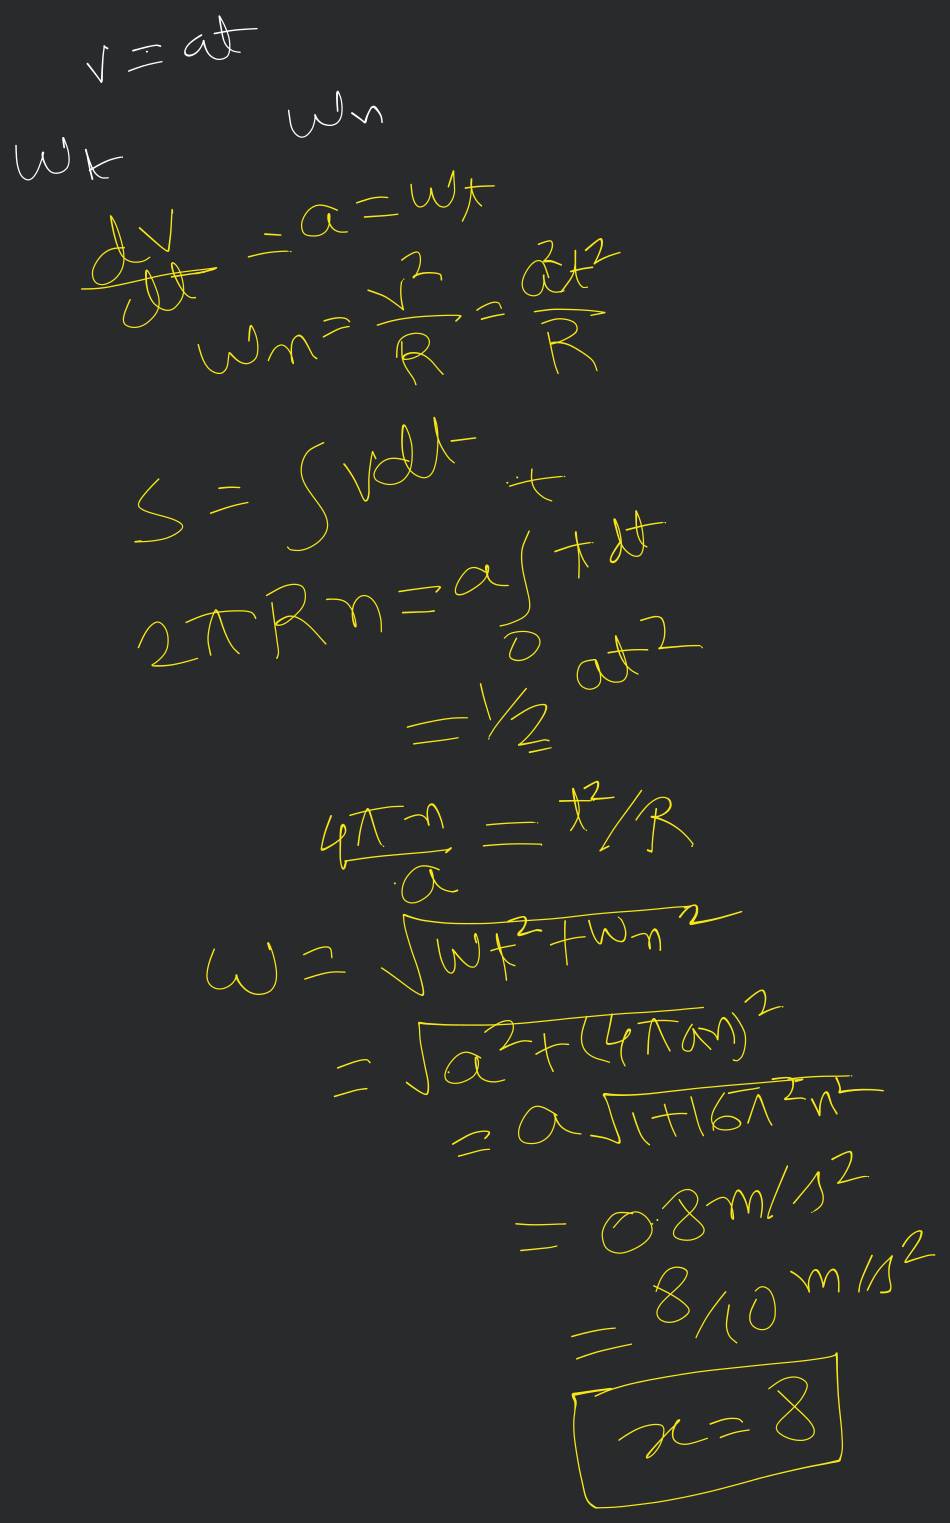 v = at
Wt Wn
dv/dt = a = Wt
Wn = v²/R = a²t²/R
S = ∫vdt
2πRn = a∫₀ᵗ t dt
= 1/2 at²
4πn/a = t²/R
ω = √(Wt² + Wn²)
= √(a² + (4πan)²)
= a√(1+16π²n²)
= 0.8 m/s²
= 8/10 m/s²
x = 8